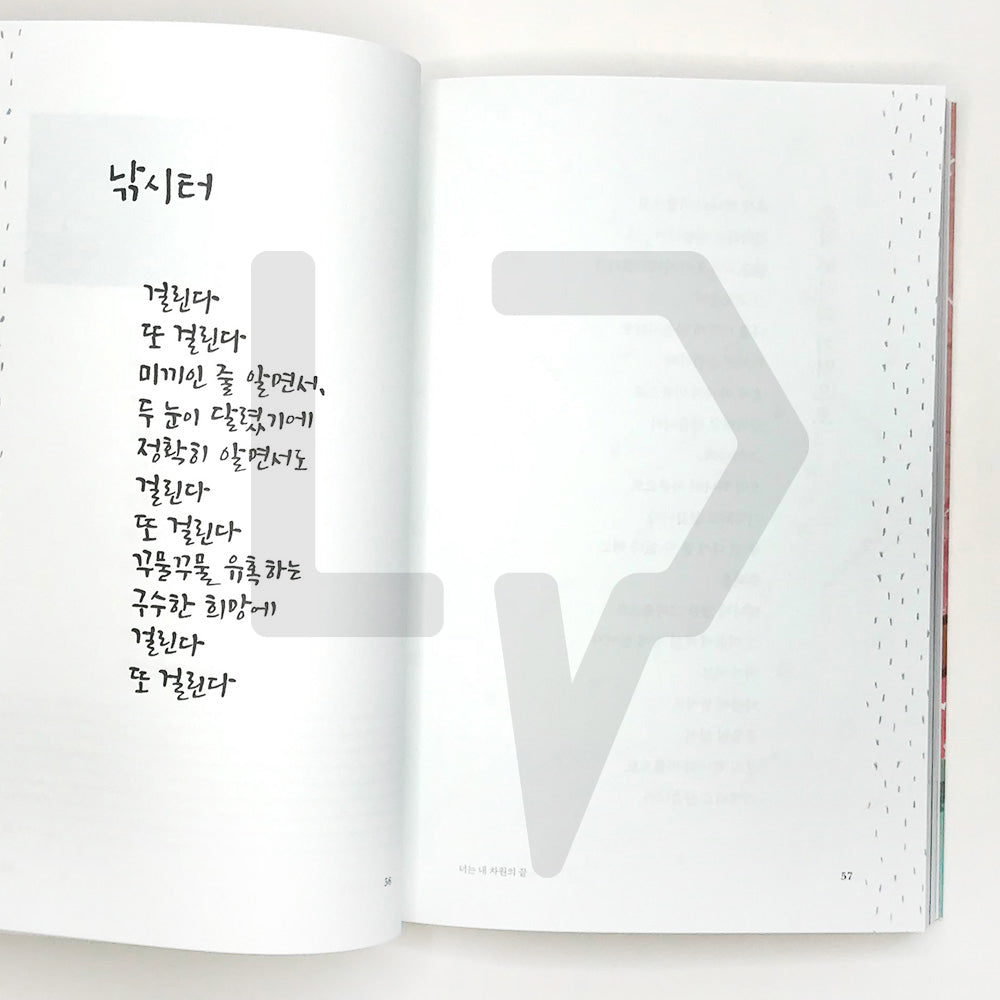 낚시터
걸린다
또 걸린다
미끼인 줄 알면서,
두 눈이 달렸기에
정확히 알면서도
걸린다
또 걸린다
꾸물꾸물 유혹하는
구수한 희망에
걸린다
또 걸린다
56
너는 내 차원의 끝
57
LDV